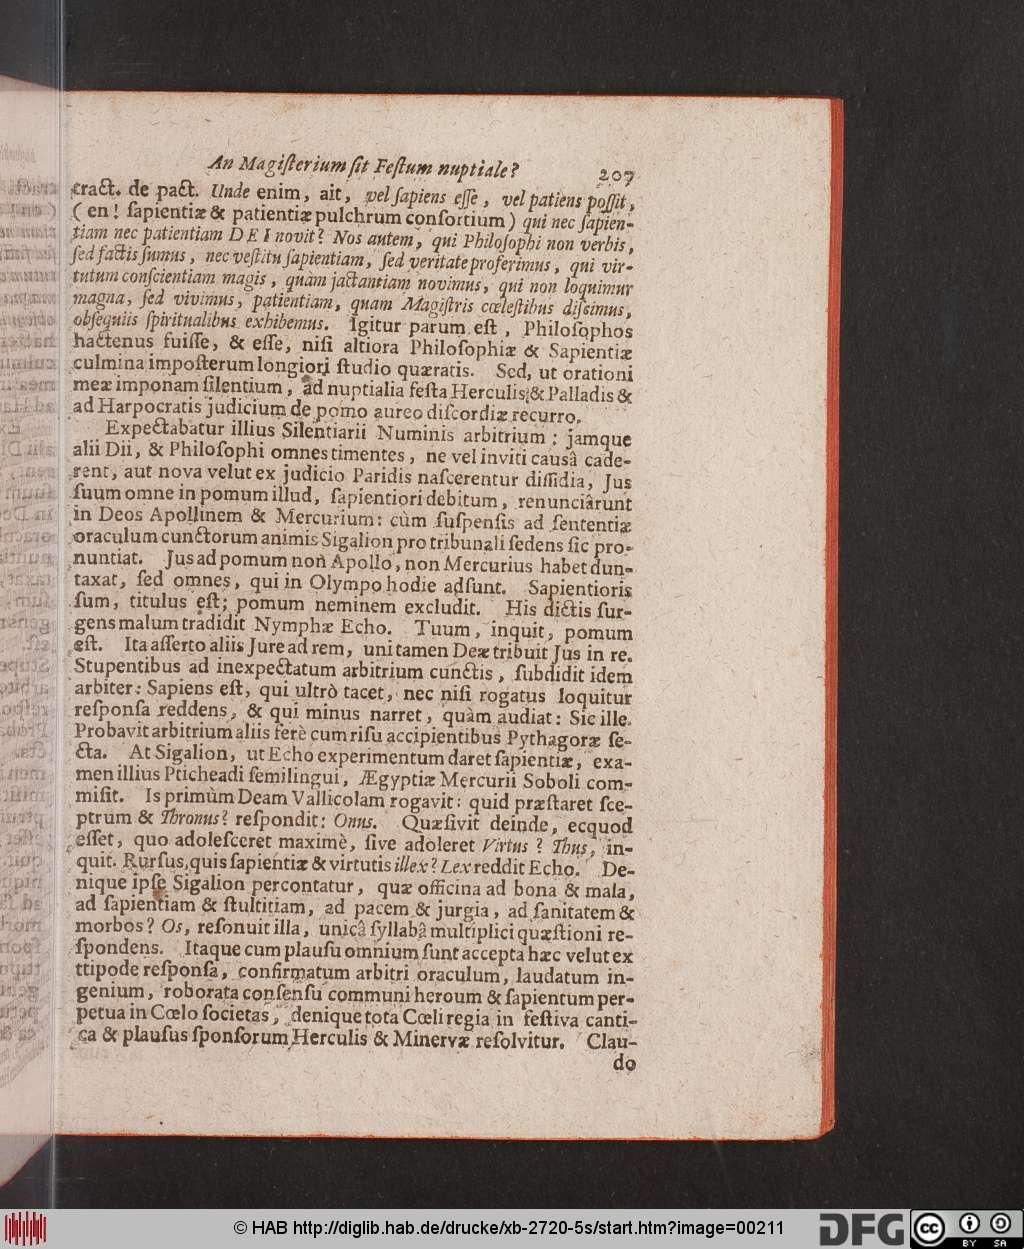 An Magiſterium ſit Feſtum nuptiale? 207
tract. de pact. Unde enim, ait, vel ſapiens eſſe, vel patiens poſſit,
(en! ſapientiæ & patientiæ pulchrum conſortium) qui nec ſapien-
tiam nec patientiam DEI novit? Nos autem, qui Philoſophi non verbis,
ſed factis ſumus, nec veſtitu ſapientiam, ſed veritate proferimus, qui vir-
tutum conſcientiam magis, quàm jactantiam novimus, qui non loquimur
magna, ſed vivimus, patientiam, quam Magiſtris cœleſtibus diſcimus,
obſequiis ſpiritualibus exhibemus. Igitur parum eſt, Philoſophos
hactenus fuiſſe, & eſſe, niſi altiora Philoſophiæ & Sapientiæ
culmina impoſterum longiori ſtudio quæratis. Sed, ut orationi
meæ imponam ſilentium, ad nuptialia feſta Herculis & Palladis &
ad Harpocratis judicium de pomo aureo diſcordiæ recurro.
Expectabatur illius Silentiarii Numinis arbitrium: jamque
alii Dii, & Philoſophi omnes timentes, ne vel inviti causâ cade-
rent, aut nova velut ex judicio Paridis naſcerentur diſſidia, Jus
ſuum omne in pomum illud, ſapientiori debitum, renunciârunt
in Deos Apollinem & Mercurium: cùm ſuſpenſis ad ſententiæ
oraculum cunctorum animis Sigalion pro tribunali ſedens ſic pro-
nuntiat. Jus ad pomum non Apollo, non Mercurius habet dun-
taxat, ſed omnes, qui in Olympo hodie adſunt. Sapientioris
ſum, titulus eſt; pomum neminem excludit. His dictis ſur-
gens malum tradidit Nymphæ Echo. Tuum, inquit, pomum
eſt. Ita aſſerto aliis Jure ad rem, uni tamen Deæ tribuit Jus in re.
Stupentibus ad inexpectatum arbitrium cunctis, ſubdidit idem
arbiter: Sapiens eſt, qui ultrò tacet, nec niſi rogatus loquitur
reſponſa reddens, & qui minus narret, quàm audiat: Sic ille.
Probavit arbitrium aliis ferè cum riſu accipientibus Pythagoræ ſe-
cta. At Sigalion, ut Echo experimentum daret ſapientiæ, exa-
men illius Pticheadi ſemilingui, Ægyptiæ Mercurii Soboli com-
miſit. Is primùm Deam Vallicolam rogavit: quid præſtaret ſce-
ptrum & Thronus? reſpondit: Onus. Quæſivit deinde, ecquod
eſſet, quo adoleſceret maximè, ſive adoleret Virtus? Thus, in-
quit. Rurſus, quis ſapientiæ & virtutis illex? Lex reddit Echo. De-
nique ipſe Sigalion percontatur, quæ officina ad bona & mala,
ad ſapientiam & ſtultitiam, ad pacem & jurgia, ad ſanitatem &
morbos? Os, reſonuit illa, unicâ ſyllabâ multiplici quæſtioni re-
ſpondens. Itaque cum plauſu omnium ſunt accepta hæc velut ex
ttipode reſponſa, confirmatum arbitri oraculum, laudatum in-
genium, roborata conſenſu communi heroum & ſapientum per-
petua in Cœlo ſocietas, denique tota Cœli regia in feſtiva canti-
ca & plauſus ſponſorum Herculis & Minervæ reſolvitur. Clau-
do
© HAB http://diglib.hab.de/drucke/xb-2720-5s/start.htm?image=00211
DFG
cc BY SA